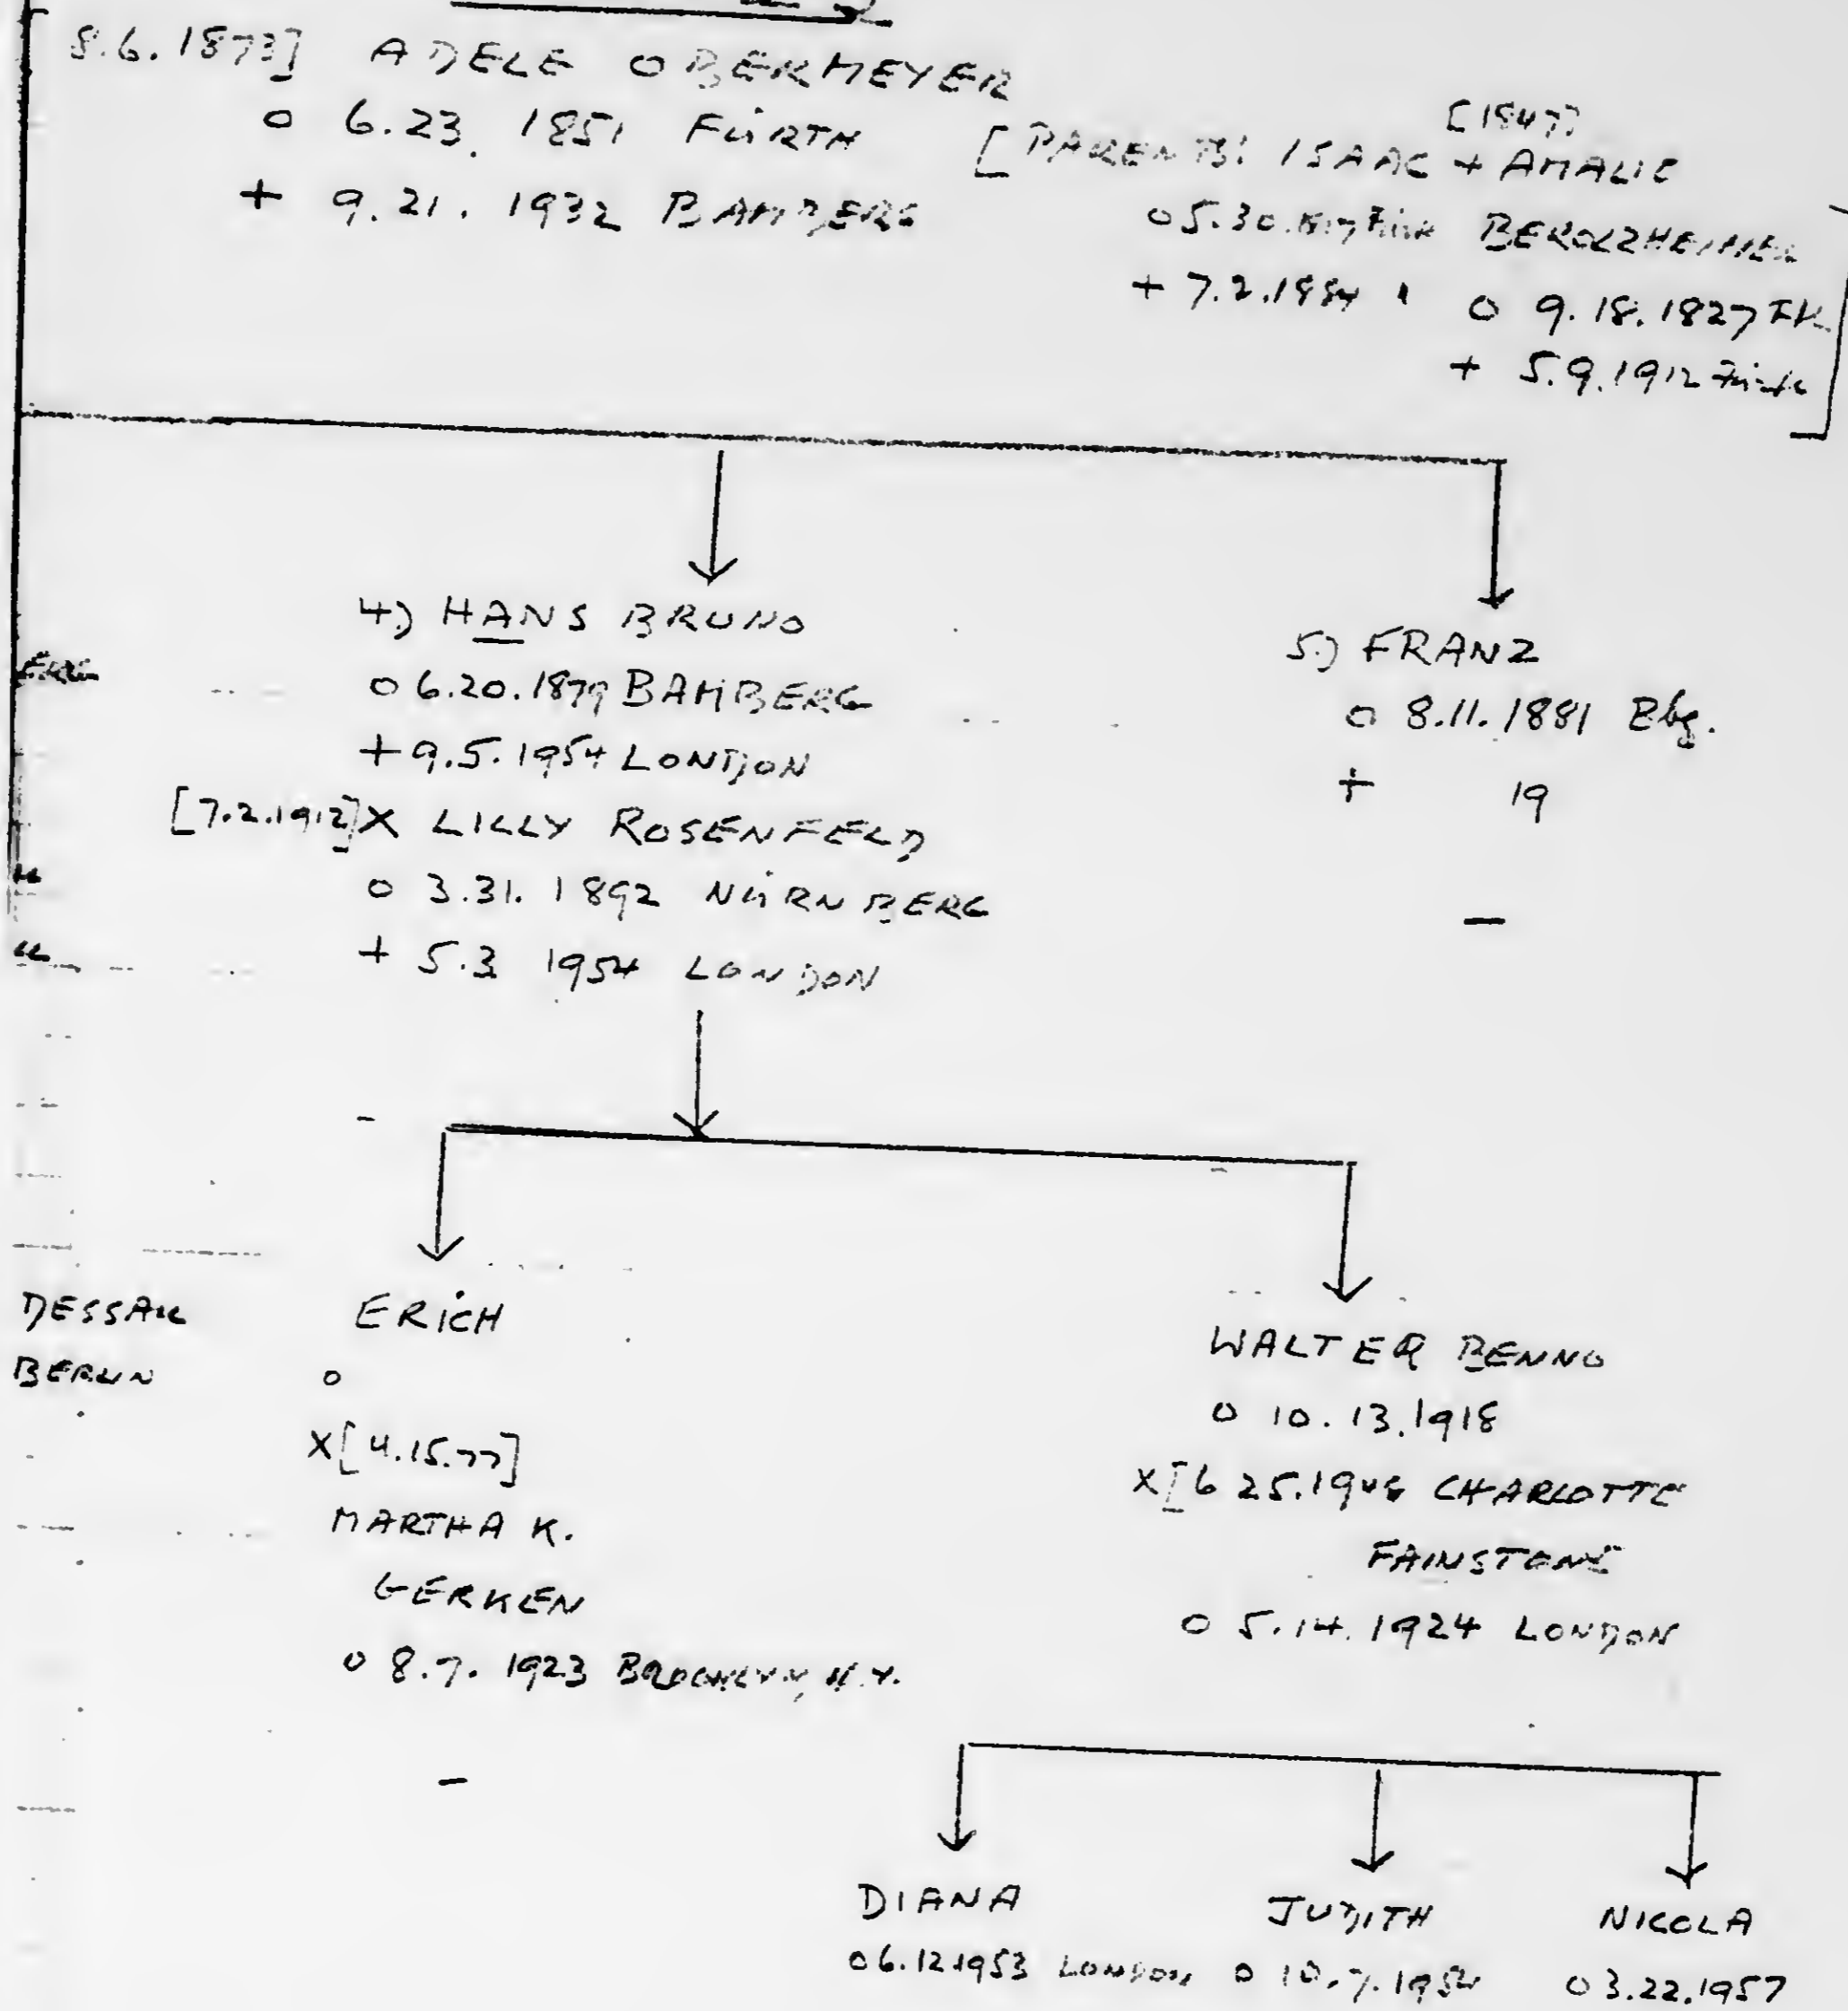 8.6.1873] ADELE OBERMEYER
o 6.23. 1851 FÜRTH
+ 9.21. 1932 BAMBERG
[1847]
[PARENTS: ISAAC + AMALIE
o 5.30. BEROLZHEIMER
+ 7.2.1884 " o 9.18.1827
+ 5.9.1912 Fürth ]
4.) HANS BRUNO
o 6.20.1879 BAMBERG
+ 9.5.1954 LONDON
[7.2.1912] X LILLY ROSENFELD
o 3.31. 1892 NÜRNBERG
+ 5.3 1954 LONDON
5.) FRANZ
o 8.11.1881 Bbg.
+ 19
—
ERG
"
"
DESSAU
BERLIN
ERICH
o
X[4.15.77]
MARTHA K.
GERKEN
o 8.7. 1923 BROOKLYN, N.Y.
—
WALTER BENNO
o 10.13.1918
X[6 25. CHARLOTTE
FAINSTONE
o 5.14.1924 LONDON
DIANA
o 6.12.1953 LONDON
JUDITH
o 10.7.
NICOLA
o 3.22.1957